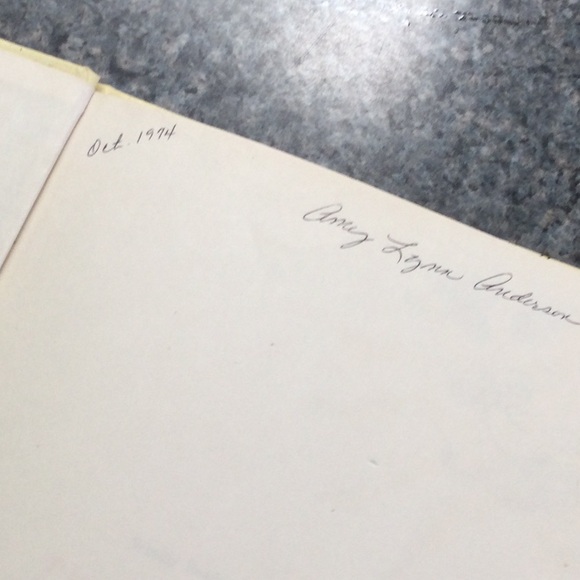 Oct. 1974
Amy Lynn Anderson